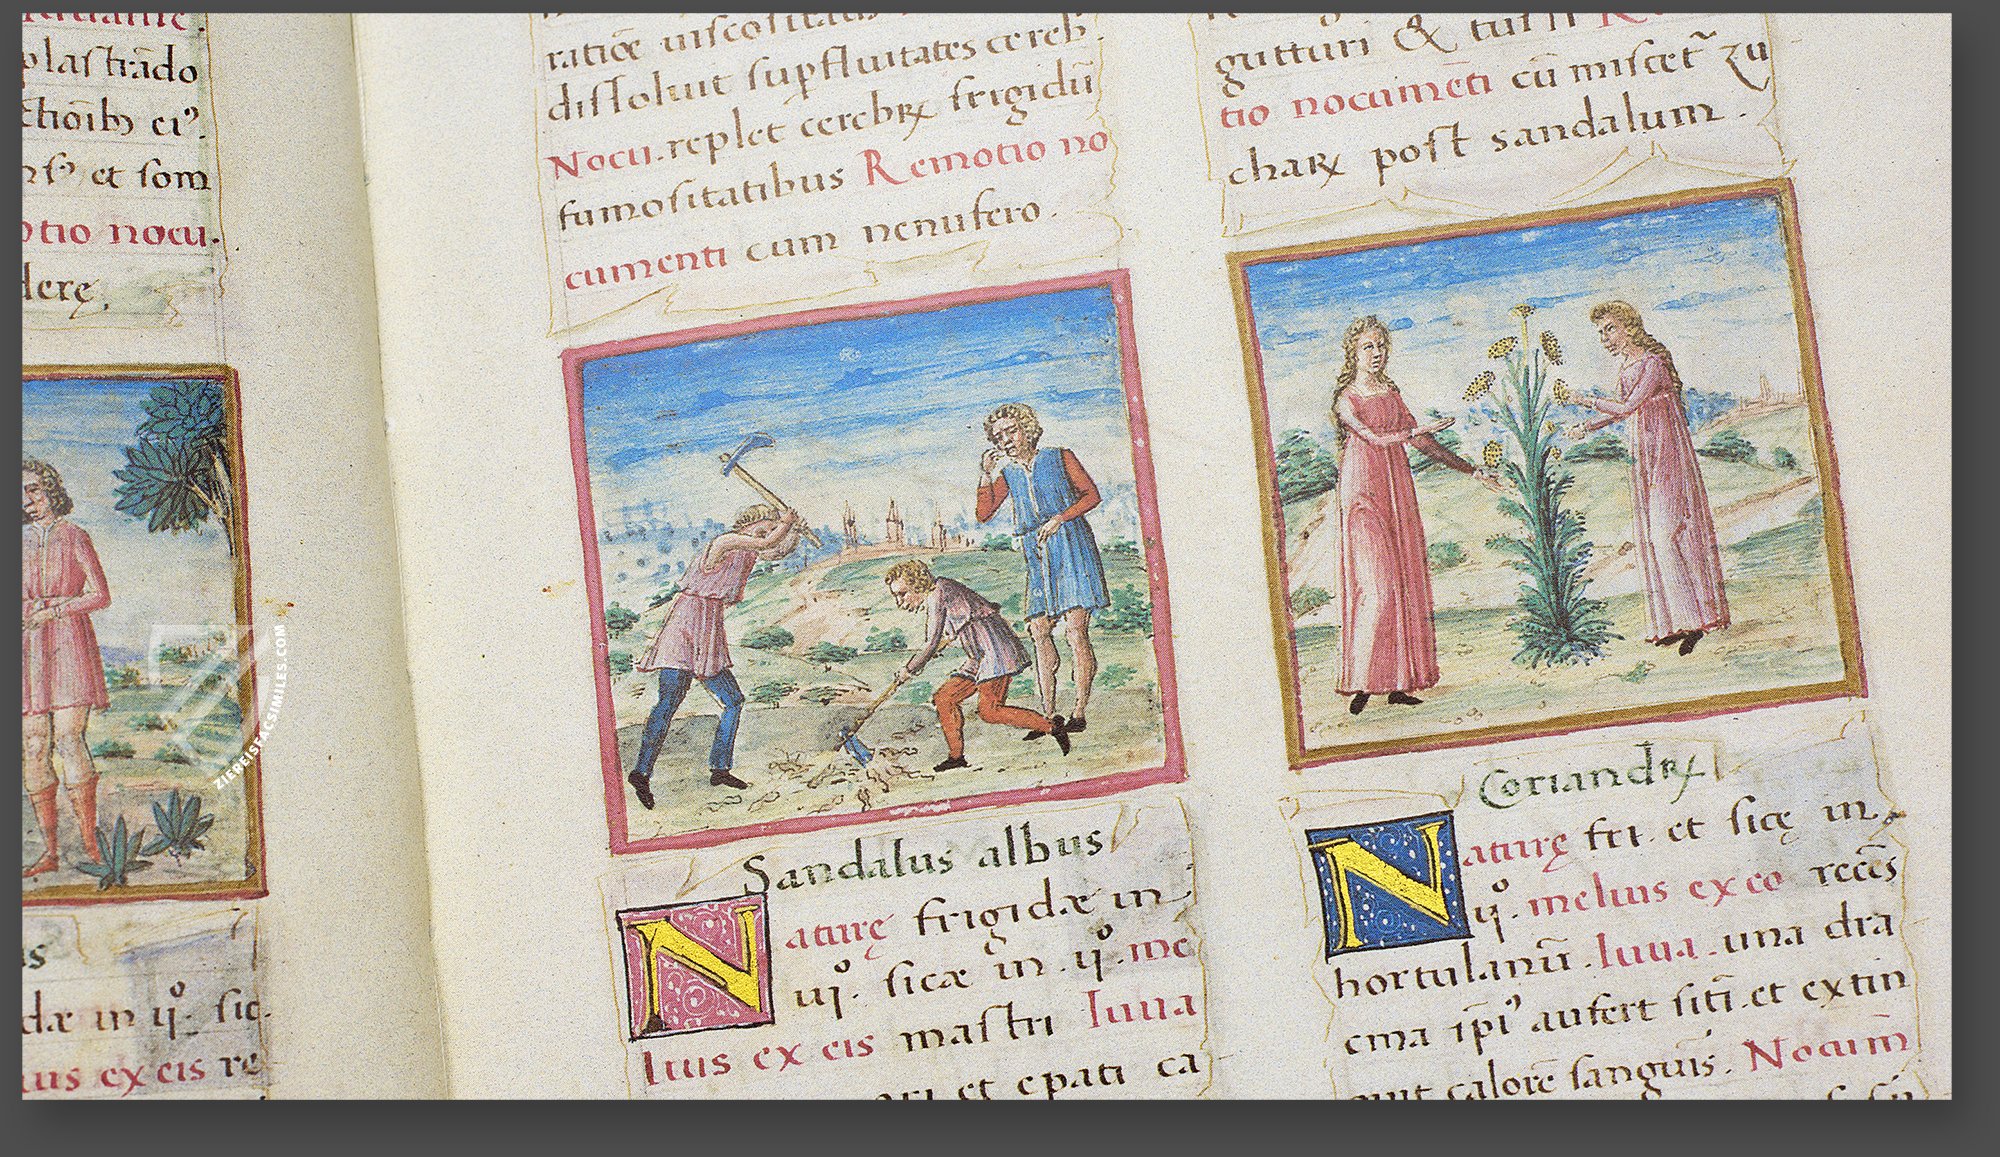 plastrādo
ctiōibꝫ eiꝰ.
et som
otio nocu.
derę.
dæ in ijº. sic.
ius ex eis re
ratiōe uiscositatis
dissoluit supfluitates cereb.
Nocu. replet cerebrꝝ frigidū
fumositatibus Remotio no
cumenti cum nenufero.
Sandalus albus
Naturę frigidæ in
iijº. sicæ in. ijº. me
lius ex eis mastri Iuua
et epati ca
gutturi & tussi
tio nocumēti cū miscet̄ zu
charꝝ post sandalum.
Coriandꝝ
Naturę fri. et sicę in
ijº. melius ex eo recēs
hortulanū. Iuua. una dra
cma ipiꝰ aufert sitī. et extin
calorē sanguīs. Nocum̄
ZIEREISFACSIMILES.COM